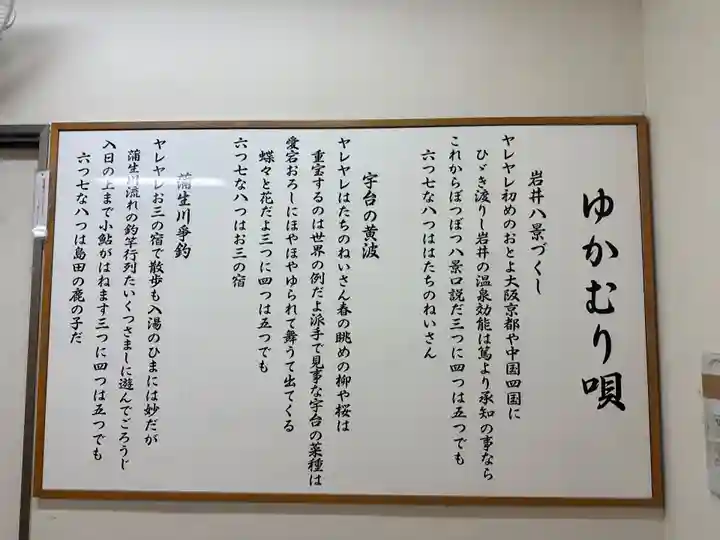 ゆかむり唄
岩井八景づくし
ヤレヤレ初めのおとよ大阪京都や中国四国に
ひゞき渡りし岩井の温泉効能は篤より承知の事なら
これからぼつぼつ八景口説だ三つに四つは五つでも
六つ七な八つははたちのねいさん
宇台の黄波
ヤレヤレはたちのねいさん春の眺めの柳や桜は
重宝するのは世界の例だよ派手で見事な宇台の菜種は
愛宕おろしにほやほやゆられて舞うて出てくる
蝶々と花だよ三つに四つは五つでも
六つ七な八つはお三の宿
蒲生川爭釣
ヤレヤレお三の宿で散歩も入湯のひまには妙だが
蒲生川流れの釣竿行列たいくつさましに遊んでごろうじ
入日の上まで小鮎がはねます三つに四つは五つでも
六つ七な八つは島田の鹿の子だ